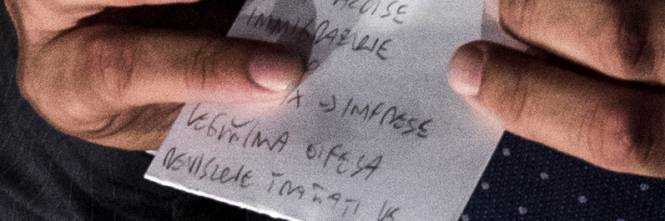 ACCISE
IMMIGRAZIONE
X → IMPRESE
LEGITTIMA DIFESA
REVISIONE TRATTATI UE